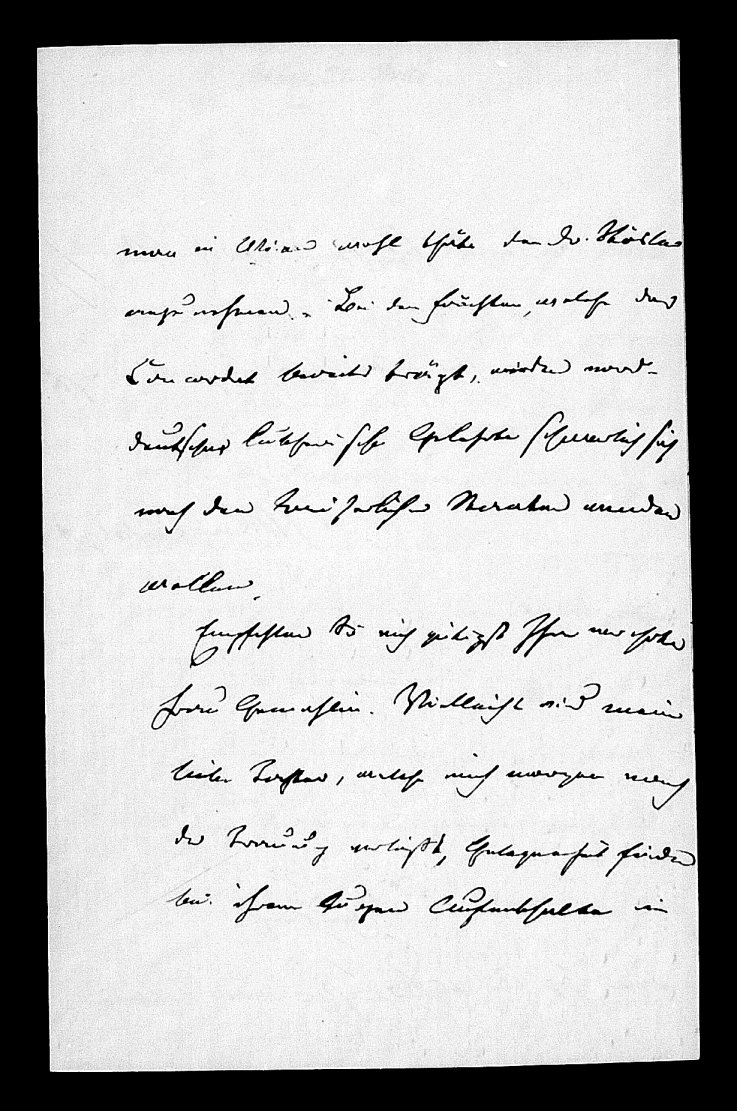 man in Wien wohl thäte den Dr.
anzunehmen. Bei den Früchten, welche das
Concordat bereits trägt, würden nord-
deutsche lutherische Gelehrte schwerlich sich
nach den Kaiserlichen Staaten wenden
wollen.
Empfehlen Sie mich gütigst Ihrer verehrten
Frau Gemahlin. Vielleicht wird meine
liebe Tochter, welche mich morgen nach
der Trauung verläßt, Gelegenheit finden
bei ihrem kurzen Aufenthalte in